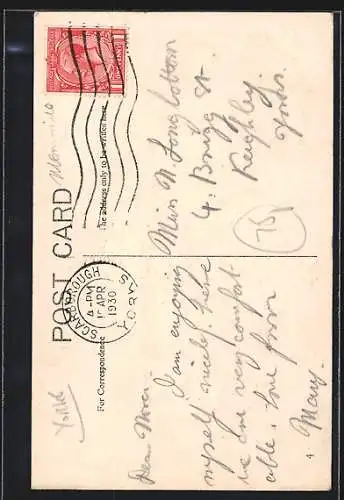 POST CARD
For Correspondence
The address only to be written here
SCARBOROUGH
4 - PM
1930
YORKS
Dear Noren.
I am enjoying
myself nicely here
we are very comfort
able, love from
Mary.
Miss N. Longbottom
4, Brigg St.
Keighley.
Yorks.
75
York
4